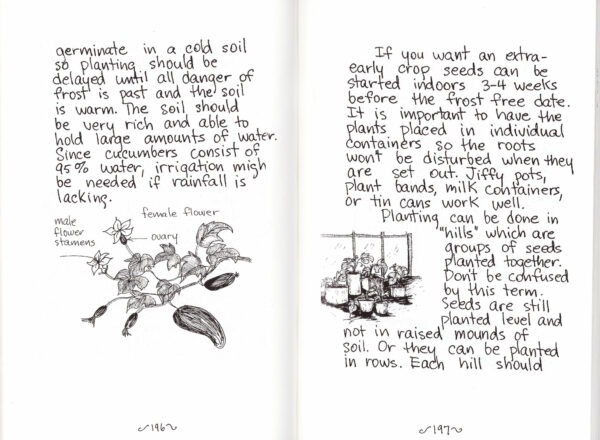 germinate in a cold soil
so planting should be
delayed until all danger of
frost is past and the soil
is warm. The soil should
be very rich and able to
hold large amounts of water.
Since cucumbers consist of
95% water, irrigation migh
be needed if rainfall is
lacking.
female flower
male
flower
stamens
ovary
196
If you want an extra-
early crop seeds can be
started indoors 3-4 weeks
before the frost free date.
It is important to have the
plants placed in individual
containers so the roots
won't be disturbed when they
are set out. Jiffy pots,
plant bands, milk containers,
or tin cans work well.
Planting can be done in
"hills" which are
groups of seeds
planted together.
Don't be confused
by this term.
Seeds are still
planted level and
not in raised mounds of
soil. Or they can be planted
in rows. Each hill should
197